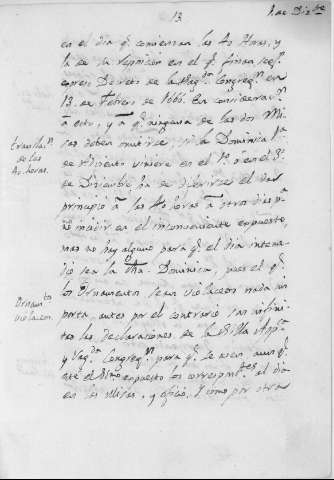 13
1. de Diz.bre
en el dia q.e comienzan las 40 Horas, y
la de la reposicion en el q.e finan seg.n
expreso Decreto de la Sag.da Congreg.n en
13. de Febrero de 1666. En considerac.n
à esto, y à q.e ninguna de las dos Mi-
sas deben omitirse, si la Dominica 1.a
de Adviento viniere en el 1.o ò en el 3.o
de Diciembre ha de diferirse el dar
principio à las 40 horas à otro dia p.a
no incidir en el inconveniente expuesto,
mas no hay alguno para q.e el dia interme-
dio sea la dha. Dominica, pues el q.e
los Ornamentos sean violaceos nada im-
porta, antes por el contrario son infini-
tas las declaraciones de la Silla App.ca
y Sag.da Congreg.n para q.e se usen aun q.e
esté el Divino expuesto los correspond.tes al dia
en las Misas, y oficio. Y como por otra
traslac.n
de las
40. horas.
Ornam.tos
violaceos.